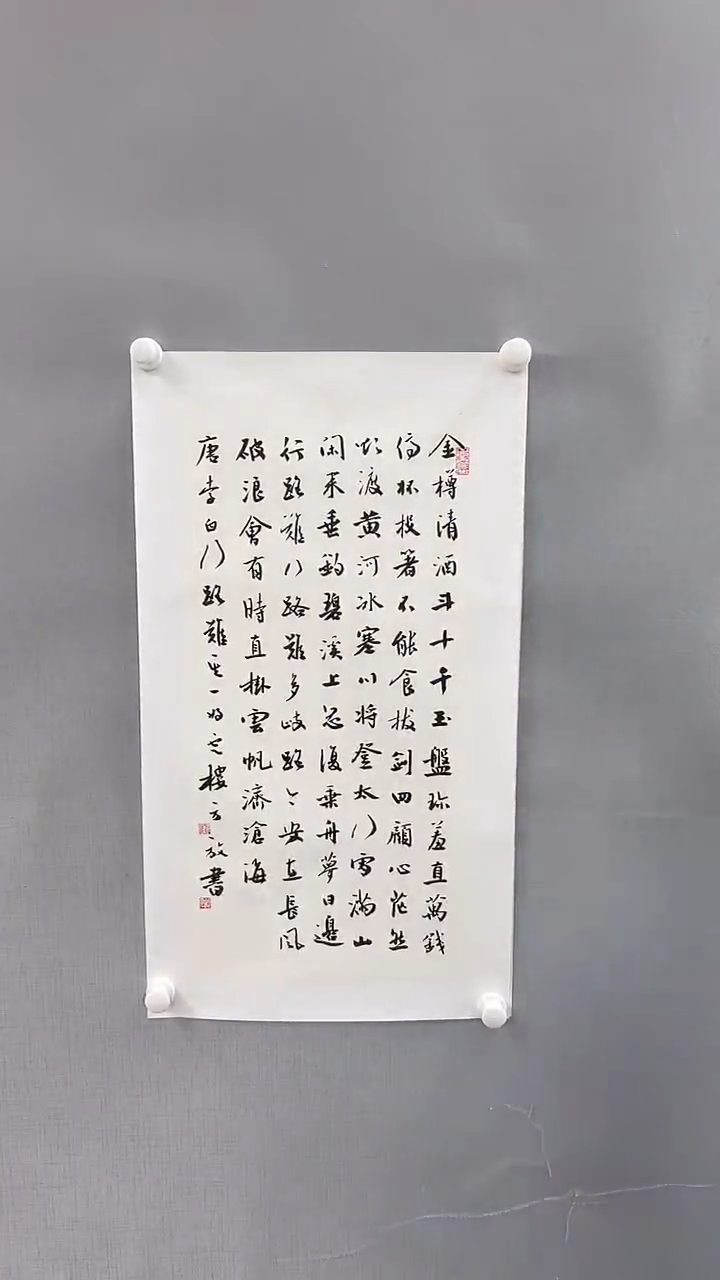 金樽清酒斗十千玉盤珎羞直萬錢
停杯投箸不能食拔劍四顧心茫然
欲渡黄河冰塞川將登太行雪滿山
闲来垂釣碧溪上忽復乘舟夢日邊
行路難行路難多歧路今安在長風
破浪會有時直掛雲帆濟滄海
唐李白行路難其一樓方放書